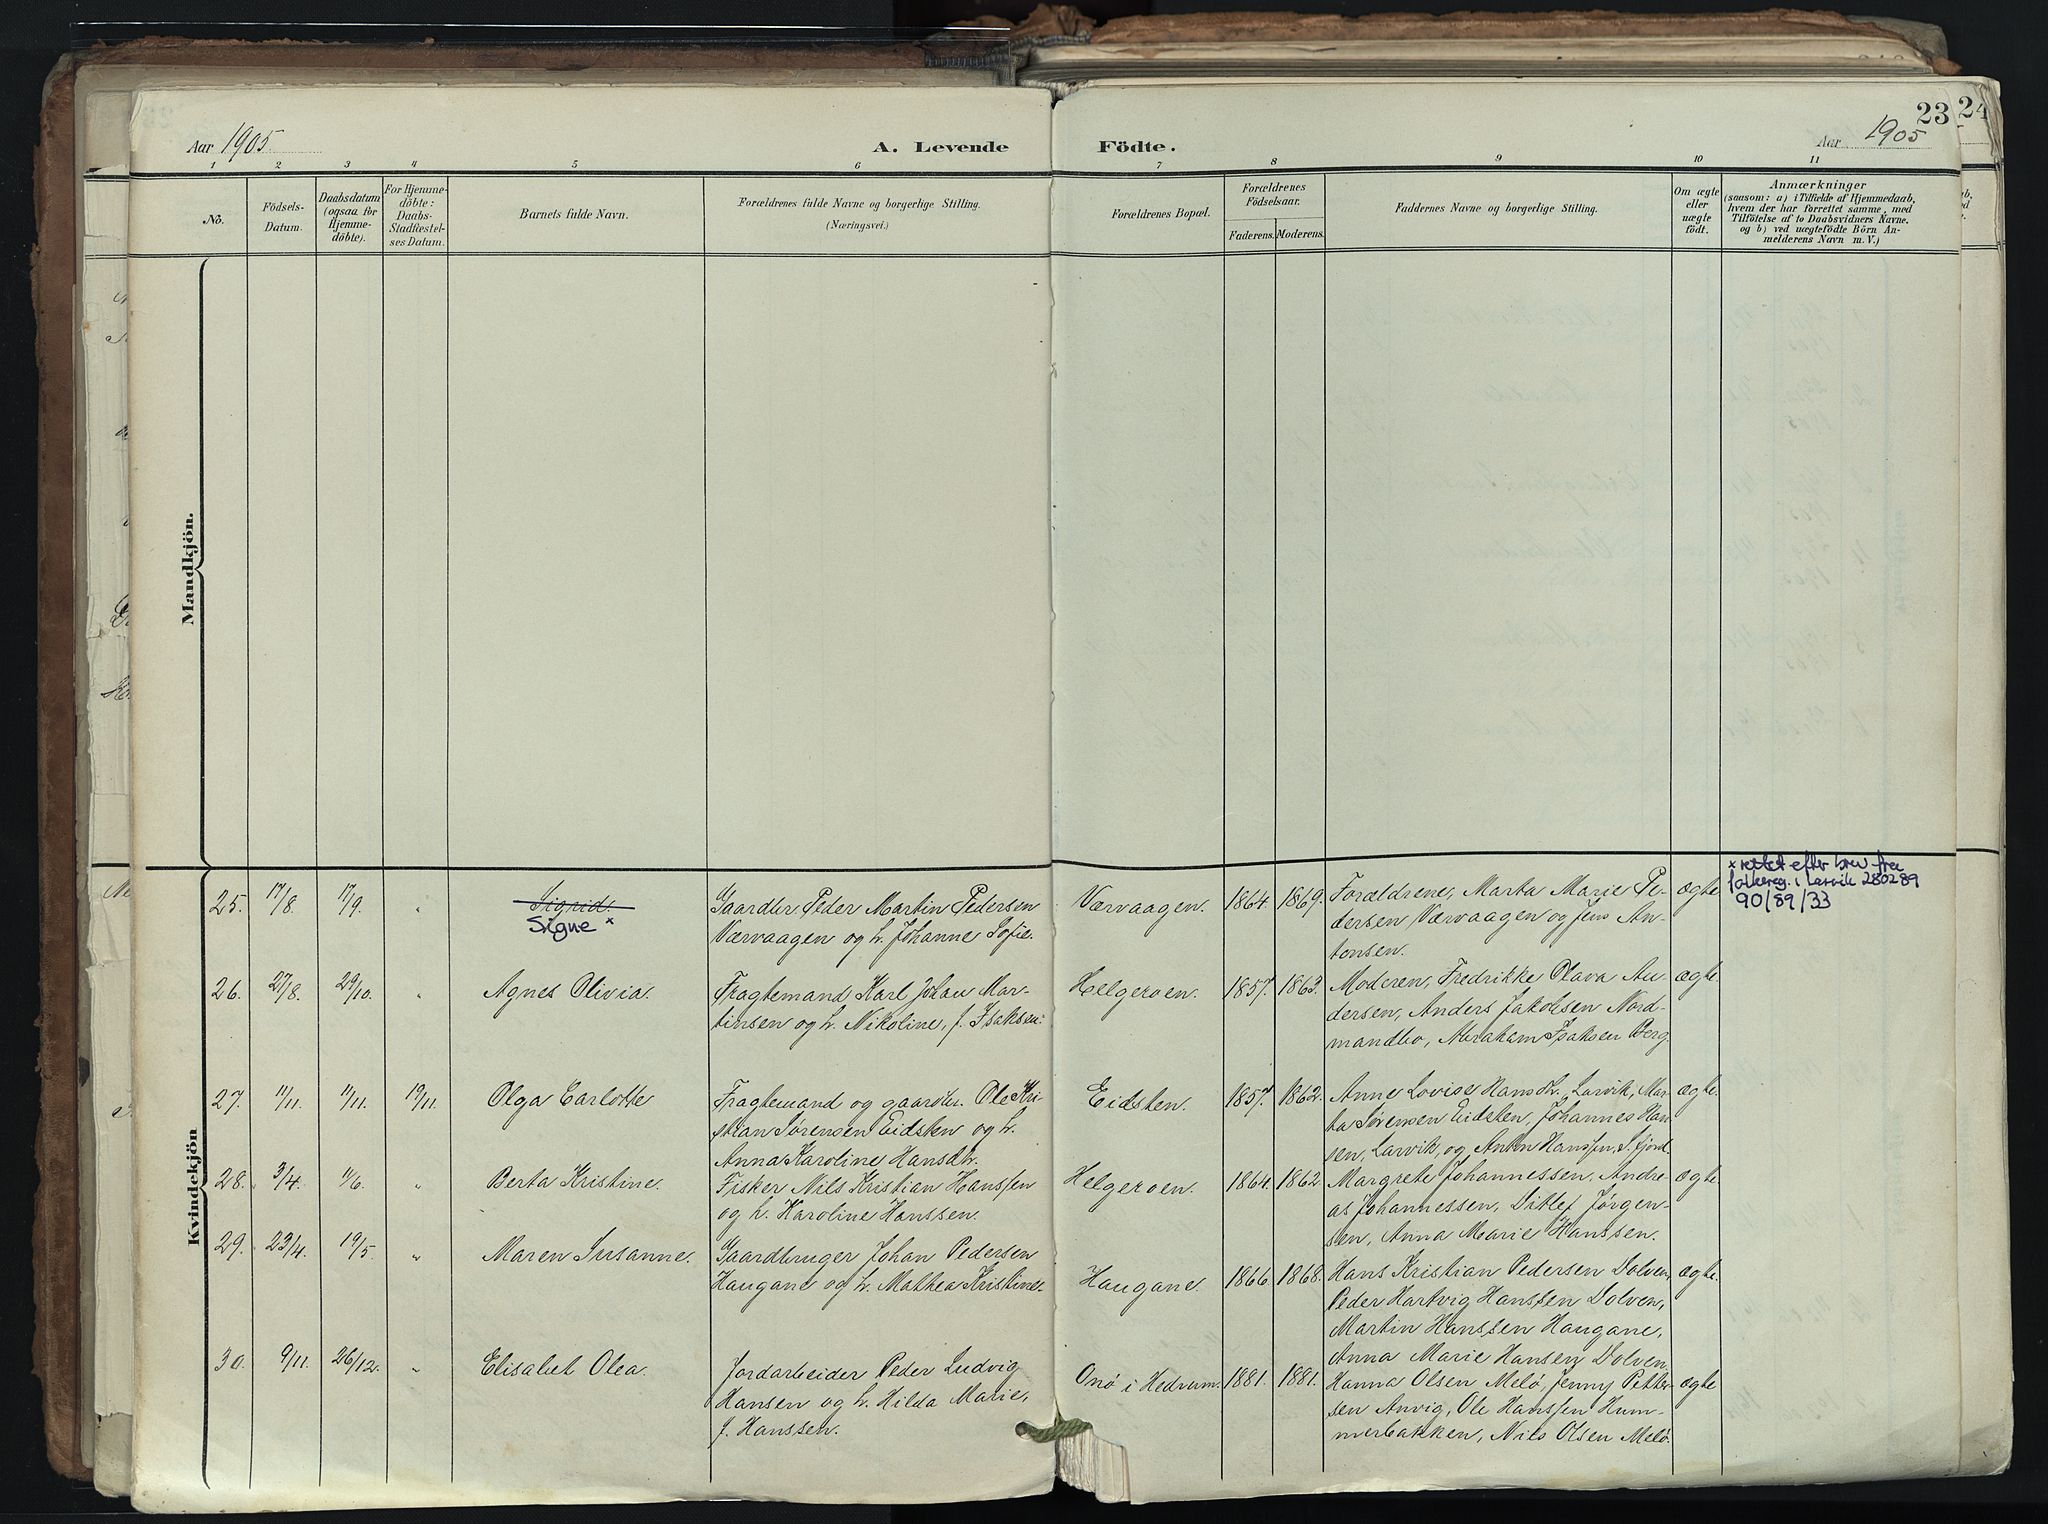 Aar 1905.
A. Levende
Födte.
23
24
Aar 1905
1 2 3 4 5 6 7 8 9 10 11
No.
Födsels-
Datum.
Daabsdatum
(ogsaa for
Hjemme-
döbte).
For Hjemme-
döbte:
Daabs-
Stadfæstel-
ses Datum.
Barnets fulde Navn.
Forældrenes fulde Navne og borgerlige Stilling.
(Næringsvei.)
Forældrenes Bopæl.
Forældrenes
Födselsaar.
Faderens. Moderens.
Faddernes Navne og borgerlige Stilling.
Om ægte
eller
uægte
födt.
Anmærkninger
(saasom: a) i Tilfælde af Hjemmedaab,
hvem der har forrettet samme, med
Tilföielse af to Daabsvidners Navne.
og b) ved uægtefödte Börn An-
melderens Navn m. V.)
Mandkjön.
Kvindekjön
25. 17/8. 17/9. " Sigrid.
Signe x
Gaardbr. Peder Martin Pedersen
Værvaagen og h. Johanne Sofie.
Værvaagen. 1864. 1869.
Forældrene, Marta Marie Pe-
dersen Værvaagen og Jens An-
tonsen.
ægte
x rettet efter brev fra
folkereg. i Larvik 280289
90/89/33
26. 27/8. 29/10. " Agnes Olivia.
Fragtemand Karl Johan Mar-
tinsen og h. Nikoline, f. Isaksen.
Helgeroen. 1857. 1863.
Moderen, Fredrikke Olava An-
dersen, Anders Jakobsen Nord-
mandbo, Abraham Isaksen Berg.
ægte.
27. 11/11. 19/11. Olga Carlotte
Fragtemand og gaardbr. Ole Kri-
stian Sørensen Eidsten og h.
Anna Karoline Hansdtr.
Eidsten. 1857. 1862.
Anne Lovise Hansdtr. Larvik, Mar-
ta Sørensen Eidsten, Johannes Han-
sen, Larvik, og Anton Hanssen, S.fjord.
ægte.
28. 3/4. " Berta Kristine.
Fisker Nils Kristian Hanssen
og h. Karoline Hanssen.
Helgeroen. 1864. 1862.
Margrete Johannessen, Andre-
as Johannessen, Ditlef Jørgen-
sen, Anna Marie Hanssen.
ægte
29. 23/4. 19/5. " Maren Susanne.
Gaardbruger Johan Pedersen
Haugane og h. Mathea Kristine.
Haugane. 1866. 1868.
Hans Kristian Pedersen Dolven,
Peder Hartvig Hanssen Dolven,
Martin Hanssen Haugane,
Anna Marie Hansen Dolven.
ægte.
30. 9/11. 26/12. " Elisabet Olea.
Jordarbeider Peder Ludvig
Hansen og h. Hilda Marie,
f. Hanssen.
Onø i Hedrum. 1881. 1881.
Hanna Olsen Melø, Jenny Petter-
sen Anvig, Ole Hanssen Hum-
merbakken, Nils Olsen Melø.
ægte